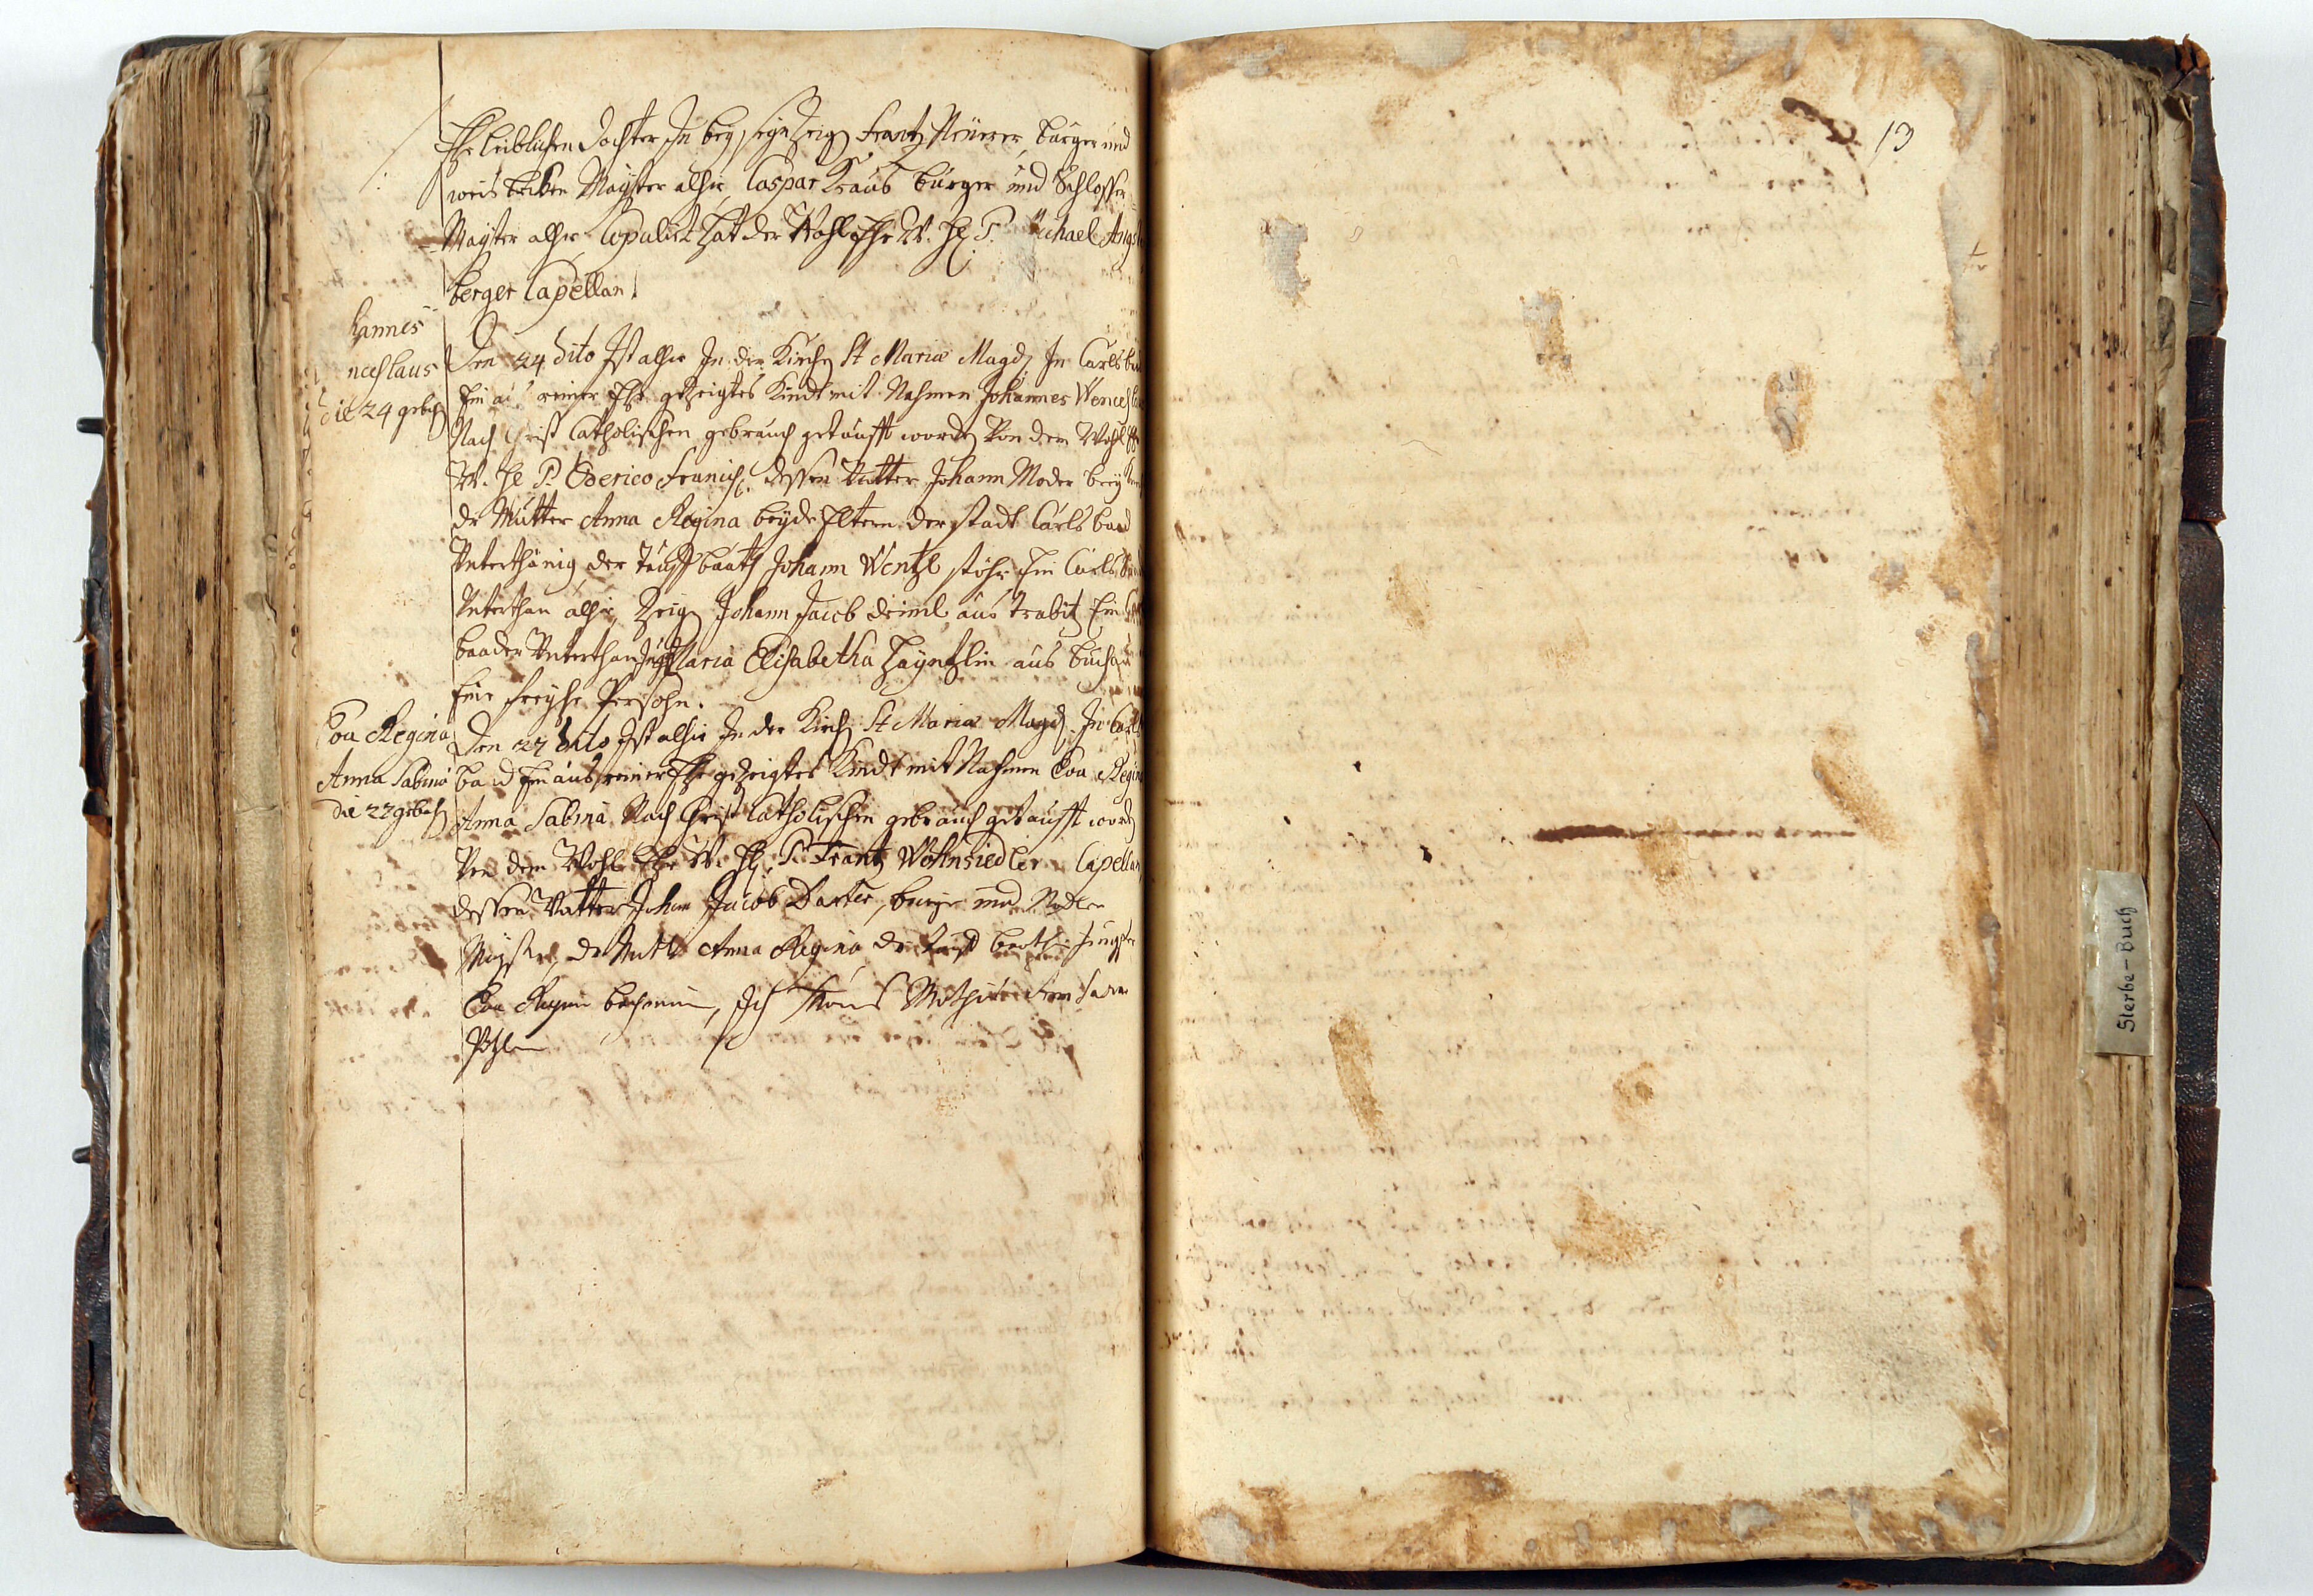 Ehe leiblichen Dochter In bey sein Zeig Frantz Neuerer burger und
weis becken Mayster alhie, Caspar Kraus burger und Schlosser
Mayster alhie Copulirt hat der Wohl Ehr W. H. P. Michael
berger Capellan.
hannes
nceslaus
die 24 geboh
Den 24 dito Ist alhie In der Kirch St Maria Magd. In Carlsbad
Ein aus reiner Ehe gezeigtes Kindt mit Nahmen Johannes Wences
Nach Christ Catholischen gebrauch getaufft worden Von dem Wohl Ehr
W. H. P. Oderico dessen Vatter Johann Moder
die Mutter Anna Regina beyde Eltern der stadt Carlsbaad
Unterthänig der Tauff baath Johann Wentzl stöhr Ein Carls
Unterthan alhie, Zeig Johann Jacob deiml aus trabitz Ein
baader Unterthan Jugf Maria Elisabetha Hayntzlin aus buchau
Eine freyhe Persohn.
Eva Regina
Anna Sabina
die 27 geboh
Den 27 dito Ist alhie In der Kirch St Maria Magd. In Carls
baad Ein aus reiner Ehe gezeigtes Kindt mit Nahmen Eva Regina
Anna Sabina Nach Christ Catholischen gebrauch getaufft worden
Von dem Wohl Ehr W. H. P. Frantz Wohnsiedler Capellan
dessen Vatter Johan Jacob burger und
Mayster, die Mutter Anna Regina, die tauff Jungfer
Eva Regina
13
Sterbe-Buch